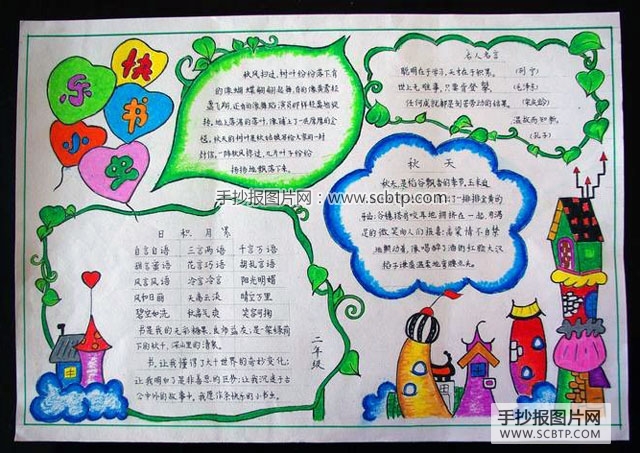 快乐书小屋
秋风扫过,树叶纷纷落下有
的像蝴蝶翩翩起舞,有的像黄莺轻
盈飞翔,还有的像舞蹈演员那样轻盈地旋
转。地上落满了落叶,像铺上了一层厚厚的金
毯。秋天的树叶是秋姑娘寄给大家的一封
封信。一阵秋风掠过,几片叶子纷纷
扬扬地飘落下来。
名人名言
聪明在于学习,天才在于积累。(列宁)
世上无难事,只要肯登攀。(毛泽东)
任何成就都是刻苦劳动的结果。(宋庆龄)
温故而知新。
(孔子)
手抄报图片网:www.scbtp.com
秋天
秋天,是稻谷飘香的季节,玉米边
一排排金黄的
地拥挤在一起,用满
足的微笑向人们报喜;高粱情不自禁
地舞动着,像喝醉了酒的红脸大汉
稻子谦虚温柔地弯腰点头。
日积月累
自言自语 三言两语 千言万语
甜言蜜语 花言巧语 胡乱言语
风言风语 冷言冷语 阳光明媚
风和日丽 天高云淡 晴空万里
碧空如洗 秋高气爽 笑容可掬
书是我的五彩糖果,良师益友;是一架绿荫
下的秋千,深山里的清泉。
书,让我懂得了大千世界的奇妙变化;
让我明白了是非善恶的区别;让我沉迷于古
今中外的故事中,我愿作条快乐的小书虫。
二年级
手抄报图片网
WWW.SCBTP.COM